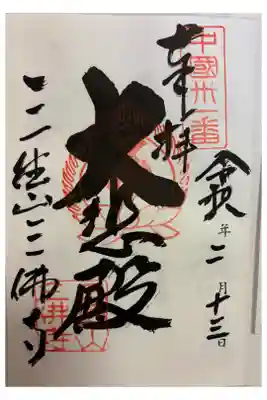 中國卅一番
奉拝
令和 年二月十三日
大悲殿
三徳山三佛寺